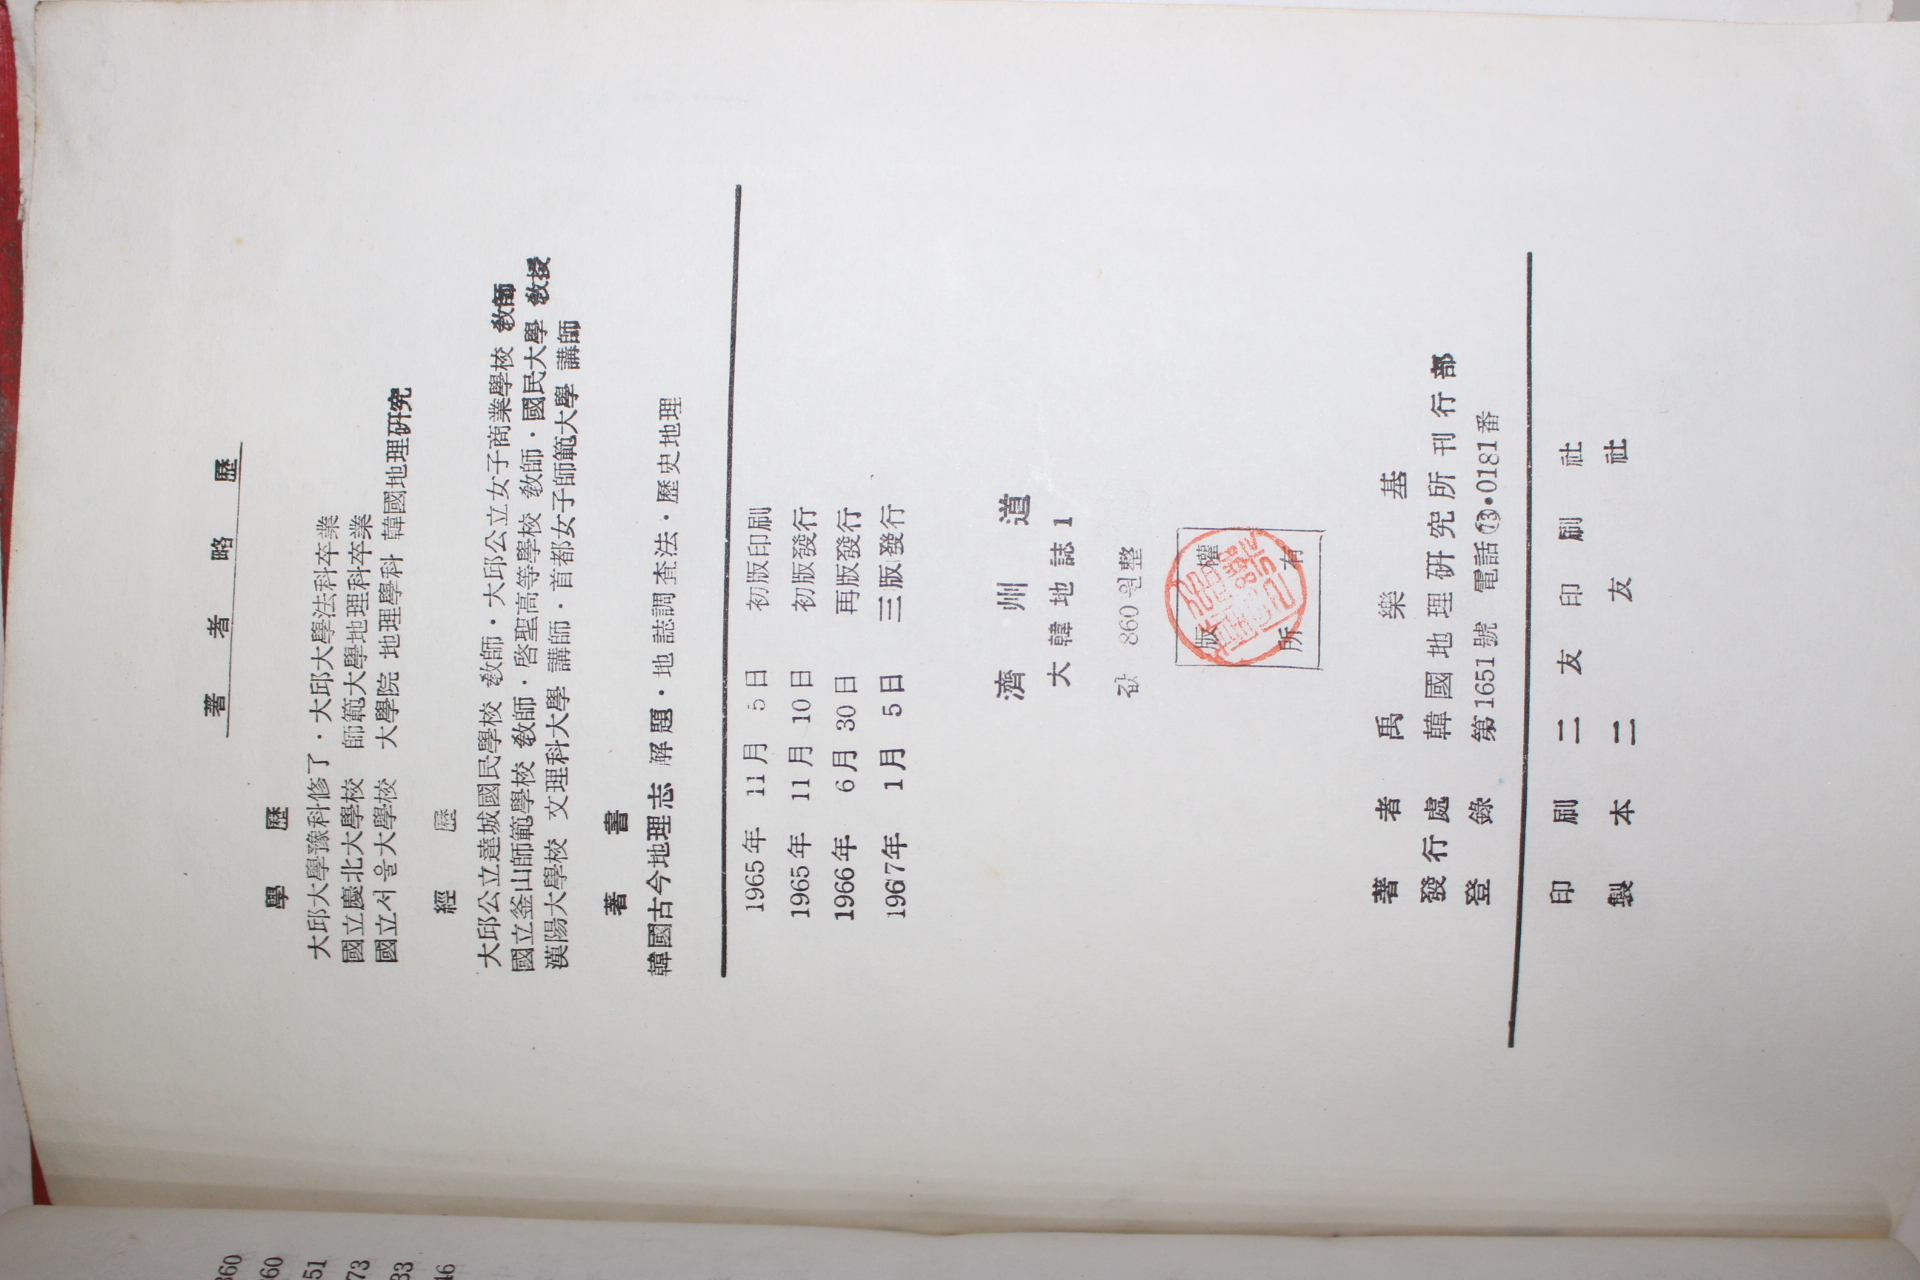 著者略歷
學歷
大邱大學豫科修了・大邱大學法科卒業
國立慶北大學校 師範大學地理科卒業
國立서울大學校 大學院 地理學科 韓國地理硏究
經歷
大邱公立達城國民學校 敎師・大邱公立女子商業學校 敎師
國立釜山師範學校 敎師・啓聖高等學校 敎師・國民大學 敎授
漢陽大學校 文理科大學 講師・首都女子師範大學 講師
著書
韓國古今地理志 解題・地誌調査法・歷史地理
1965年 11月 5日 初版印刷
1965年 11月 10日 初版發行
1966年 6月 30日 再版發行
1967年 1月 5日 三版發行
濟州道
大韓地誌1
값 860원整
版權
所有
著者 禹樂基
發行處 韓國地理硏究所刊行部
登錄 第1651號 電話(73)•0181番
印刷 二友印刷社
製本 二友社
360
60
51
73
83
46